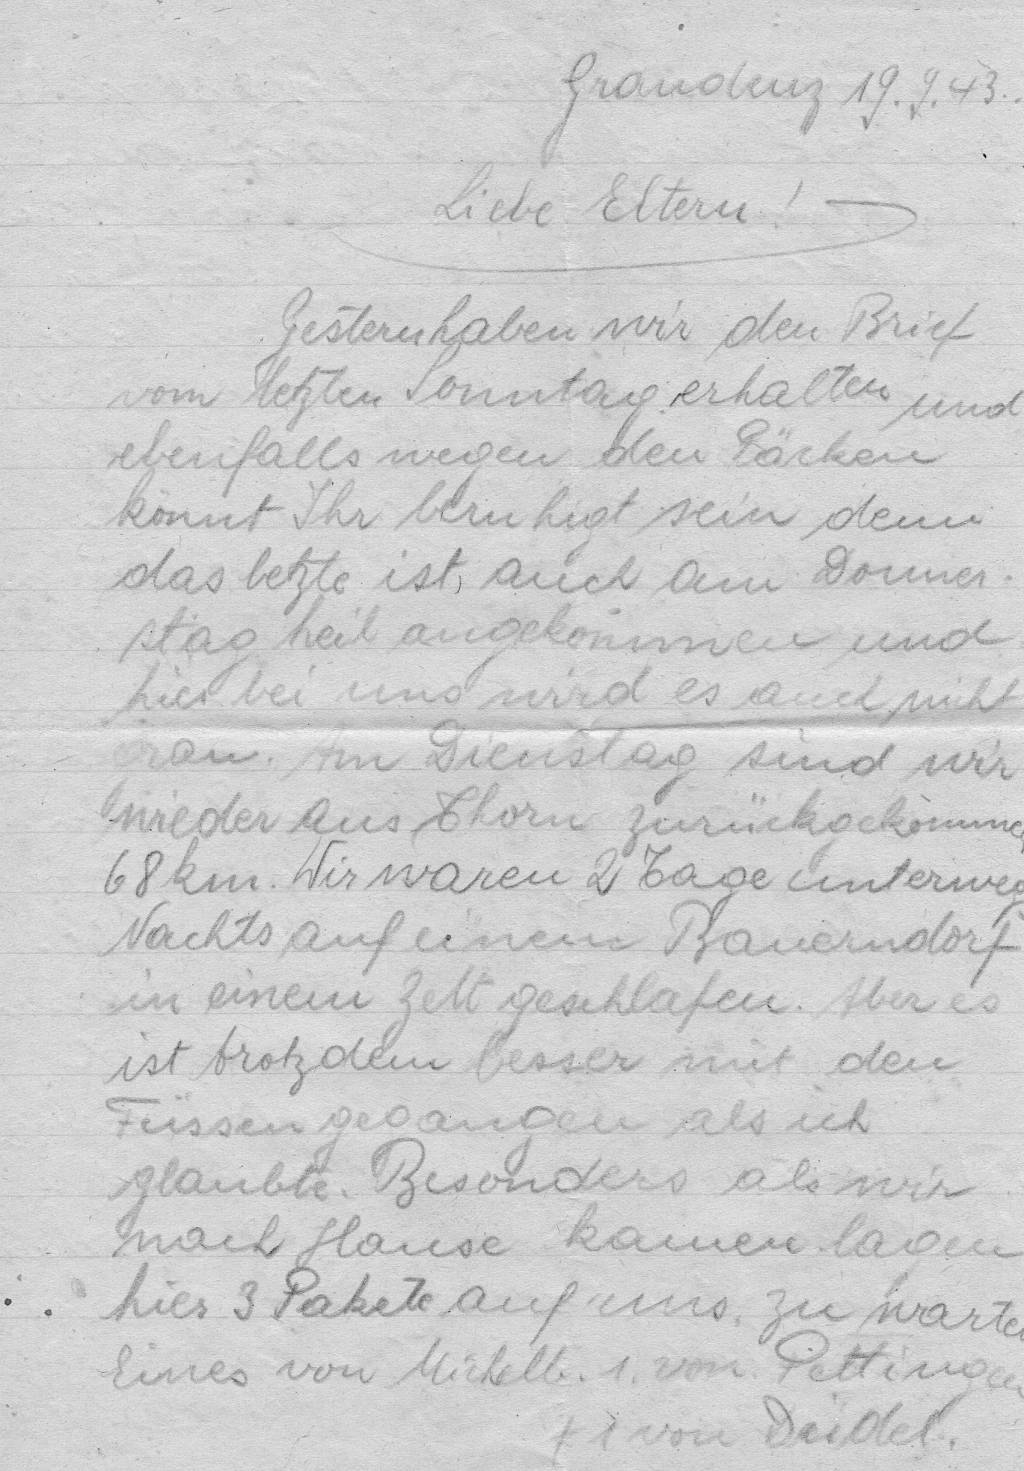 Graudenz 19.9.43.
Liebe Eltern!
Gestern haben wir den Brief
vom letzten Sonntag erhalten und
ebenfalls wegen den Päcken
könnt Ihr beruhigt sein denn
das letzte ist, auch am Donner-
stag heil angekommen und
hier bei uns wird es auch nicht
Am Dienstag sind wir
wieder aus Thorn zurückgekommen
68 km. Wir waren 2 Tage unterweg
Nachts auf einem Bauerndorf
in einem Zelt geschlafen. Aber es
ist trotzdem besser mit den
Füssen gegangen als ich
glaubte. Besonders als wir
nach Hause kamen lagen
hier 3 Pakete auf uns, zu warten
Eines von 1. von Pettingen
+ 1 von Düdel.